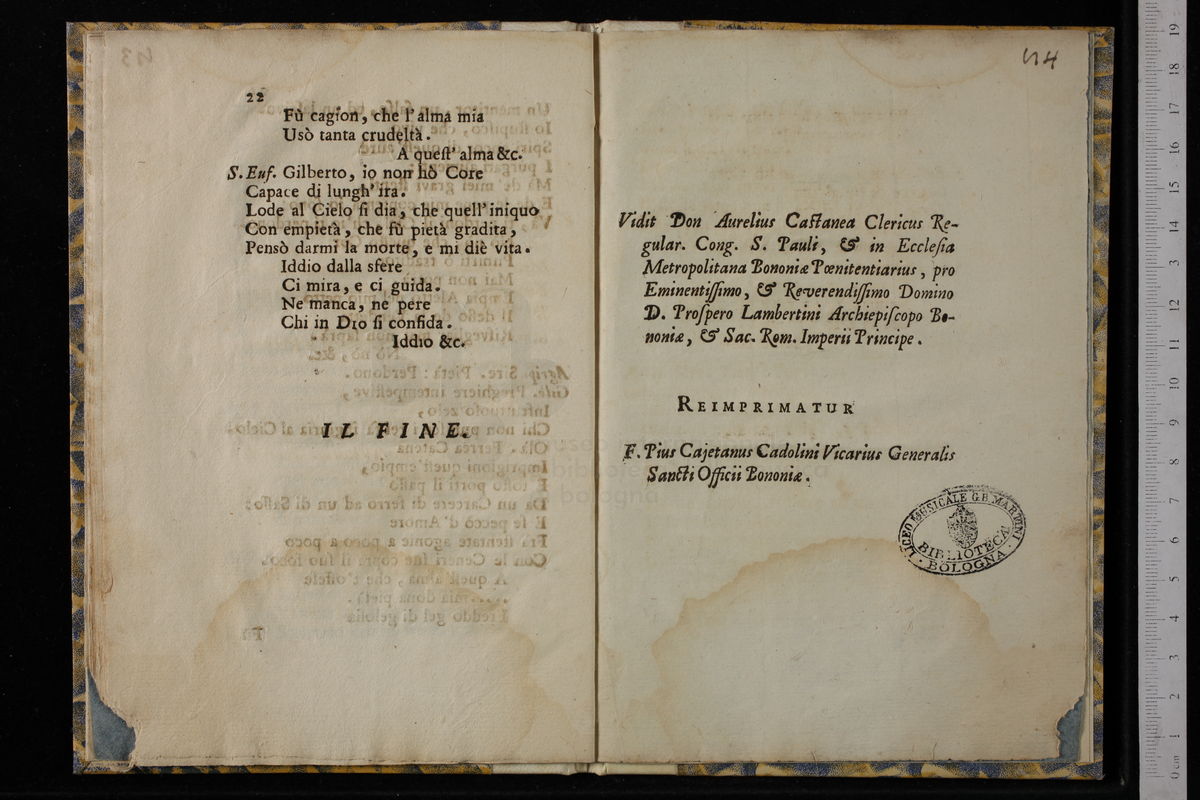 22
Fù cagion, che l'alma mia
Usò tanta crudeltà.
A quest' alma &c.
S. Euf. Gilberto, io non hò Core
Capace di lungh' ira.
Lode al Cielo si dia, che quell' iniquo
Con empietà, che fù pietà gradita,
Pensò darmi la morte, e mi diè vita.
Iddio dalla sfere
Ci mira, e ci guida.
Ne manca, ne pere
Chi in Dio si confida.
Iddio &c.
IL FINE.
44
Vidit Don Aurelius Castanea Clericus Re-
gular. Cong. S. Pauli, & in Ecclesia
Metropolitana Bononiæ Pœnitentiarius, pro
Eminentissimo, & Reverendissimo Domino
D. Prospero Lambertini Archiepiscopo Bo-
noniæ, & Sac. Rom. Imperii Principe.
REIMPRIMATUR
F. Pius Cajetanus Cadolini Vicarius Generalis
Sancti Officii Bononiæ.
LICEO MUSICALE G.B. MARTINI
BIBLIOTECA
BOLOGNA
0 cm 1 2 3 4 5 6 7 8 9 10 11 12 13 14 15 16 17 18 19